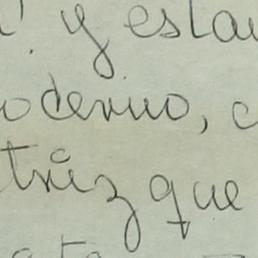 y estau
oderno, c
triz que